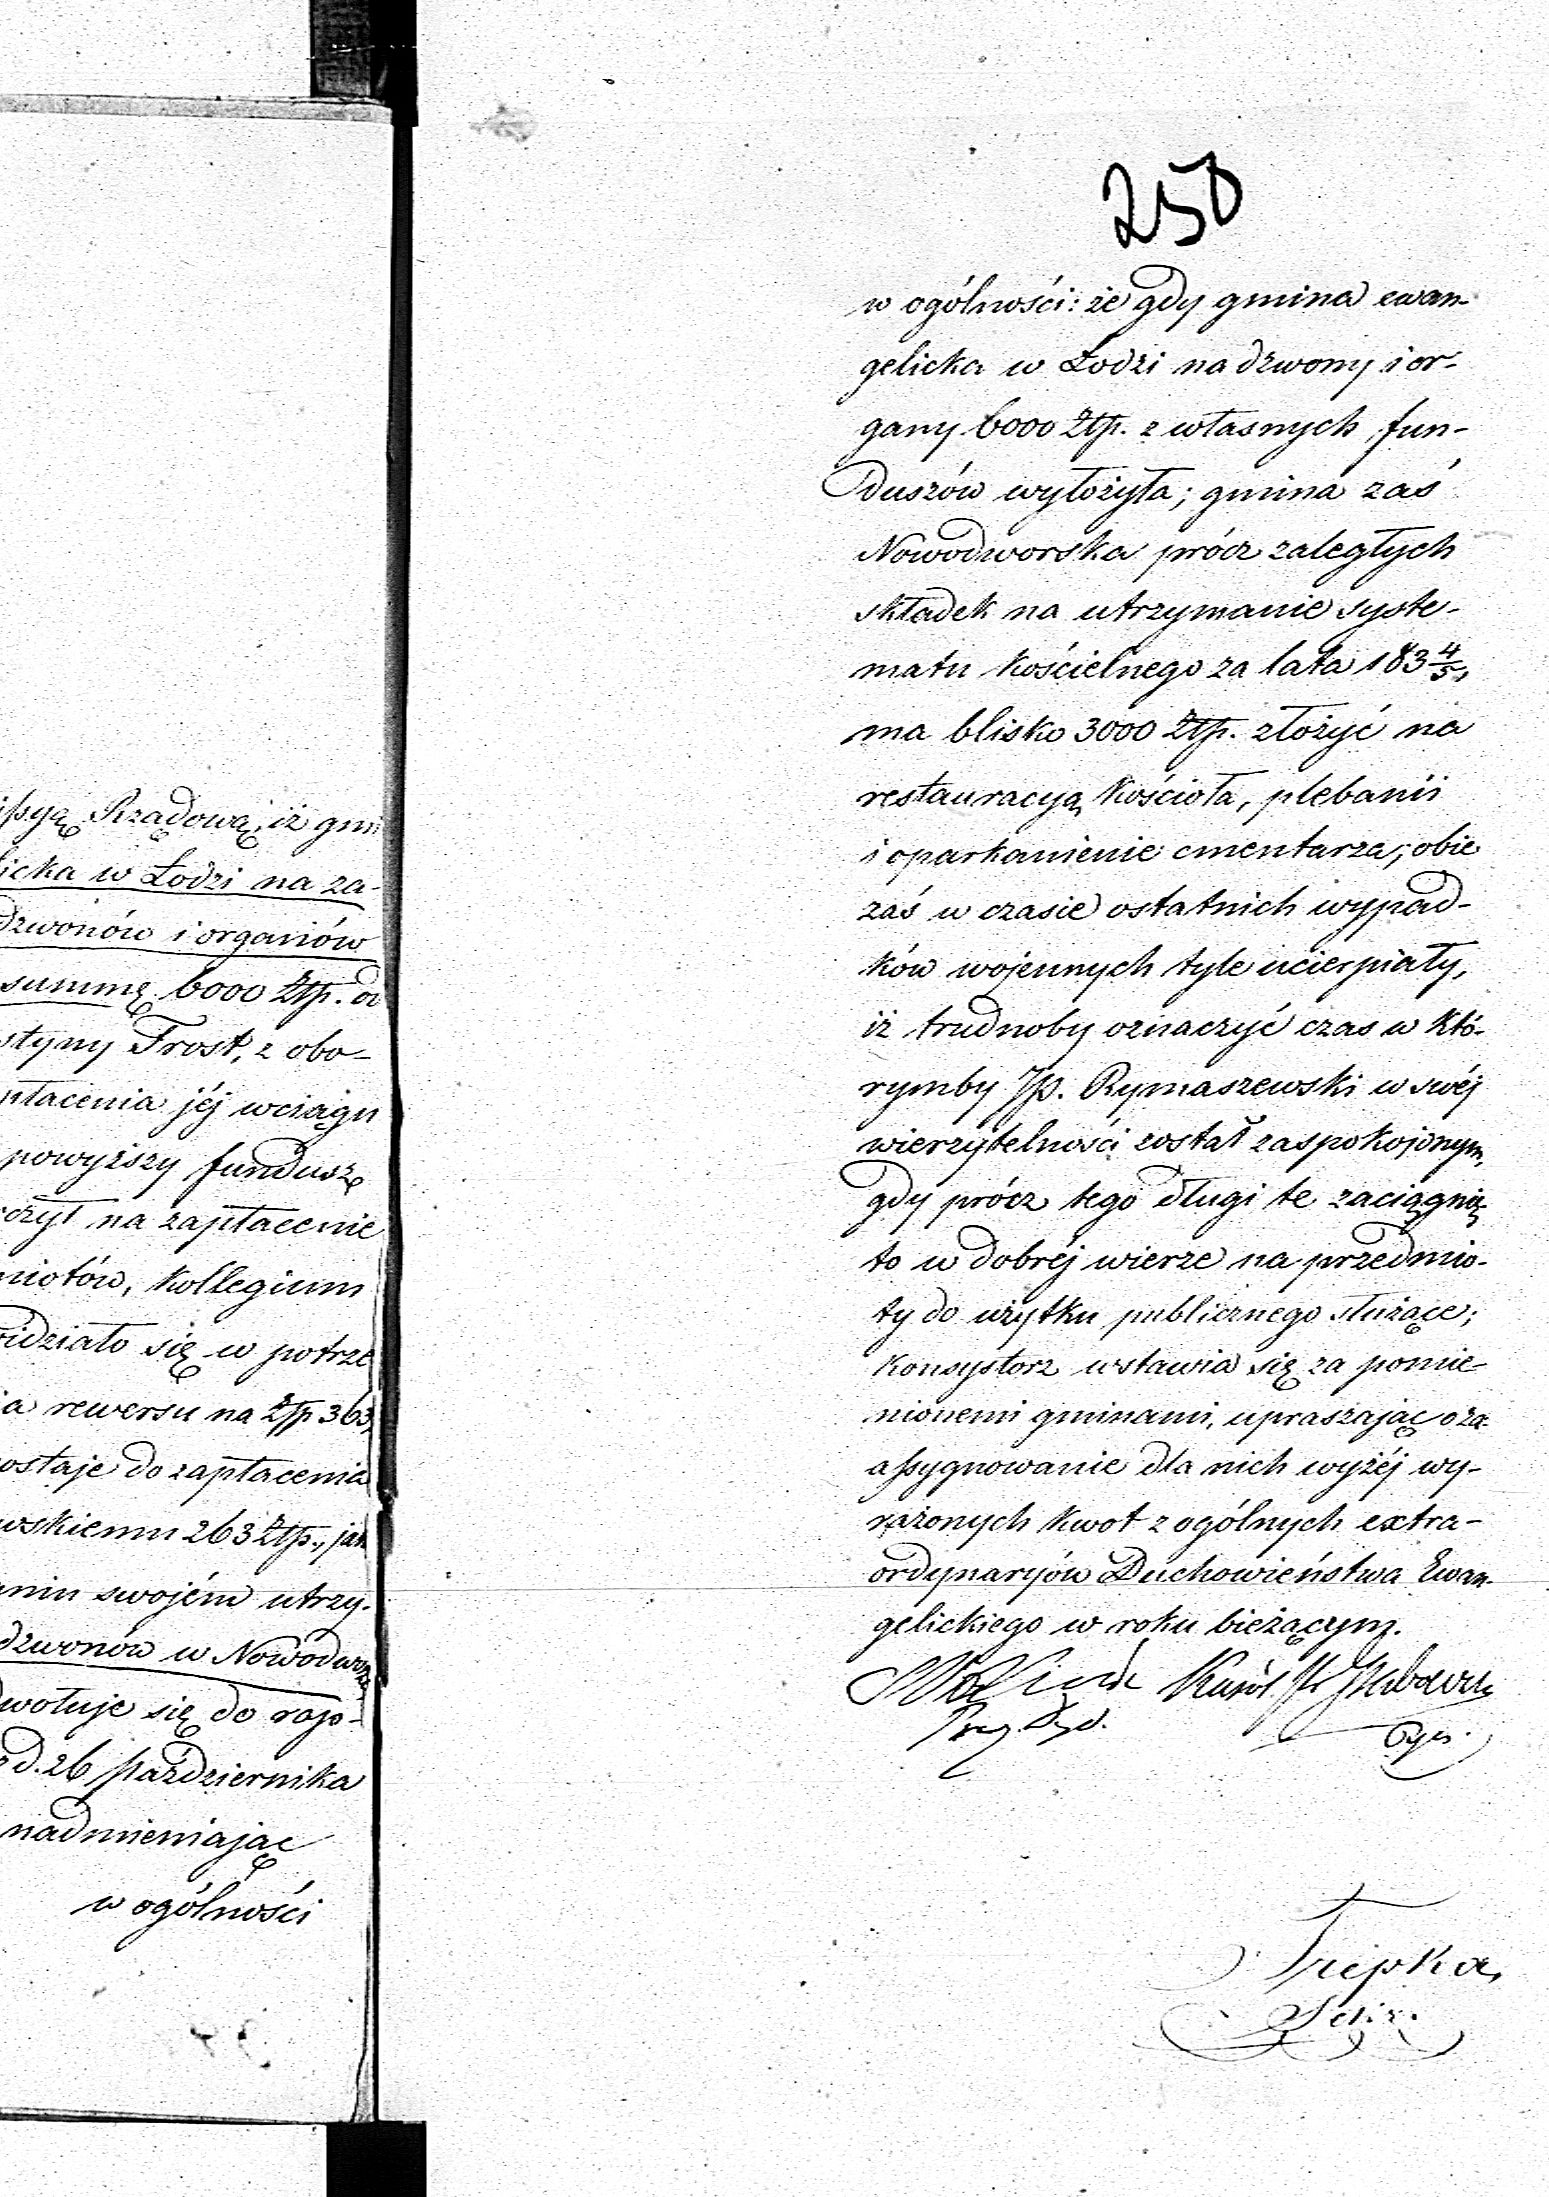 iſsyą Rządową, iż gmi
licka w Łodzi na za-
dzwonów i organów
summę 6000 Złp. od
styny Frost, z obo-
płacenia jéj wciągu
powyższy fundusz
czył na zapłacenie
miotów, Kollegium
widziało się w potrze
ia rewersu na Złp 363,
ostaje do zapłacenia
wskiemu 263 Złp., jak
aniu swojém utrzy-
dzwonów w Nowodwor
dwołuje się do rapo-
z d. 26 Października
nadmieniając
w ogólności
250
w ogólności: że gdy gmina ewan-
gelicka w Łodzi na dzwony i or-
gany 6000 Złp. z własnych fun-
duszów wyłożyła; gmina zaś
Nowodworska prócz zaległych
składek na utrzymanie syste-
matu kościelnego za lata 183 4/5,
ma blisko 3000 Złp. złożyć na
restauracyą Kościoła, plebanii
i oparkanienie cmentarza; obie
zaś w czasie ostatnich wypad-
ków wojennych tyle ucierpiały,
iż trudnoby oznaczyć czas w któ-
rymby JP. Rymaszewski w swéj
wierzytelności został zaspokojonym,
gdy prócz tego długi te zaciągnię-
to w dobréj wierze na przedmio-
ty do użytku publicznego służące;
Konsystorz wstawia się za pomie-
nionemi gminami, upraszając o za-
aſsygnowanie dla nich wyżéj wy-
rażonych kwot z ogólnych extra-
ordynaryjów Duchowieństwa Ewan-
gelickiego w roku bieżącym.
Karól
Tripka,
Sekr.